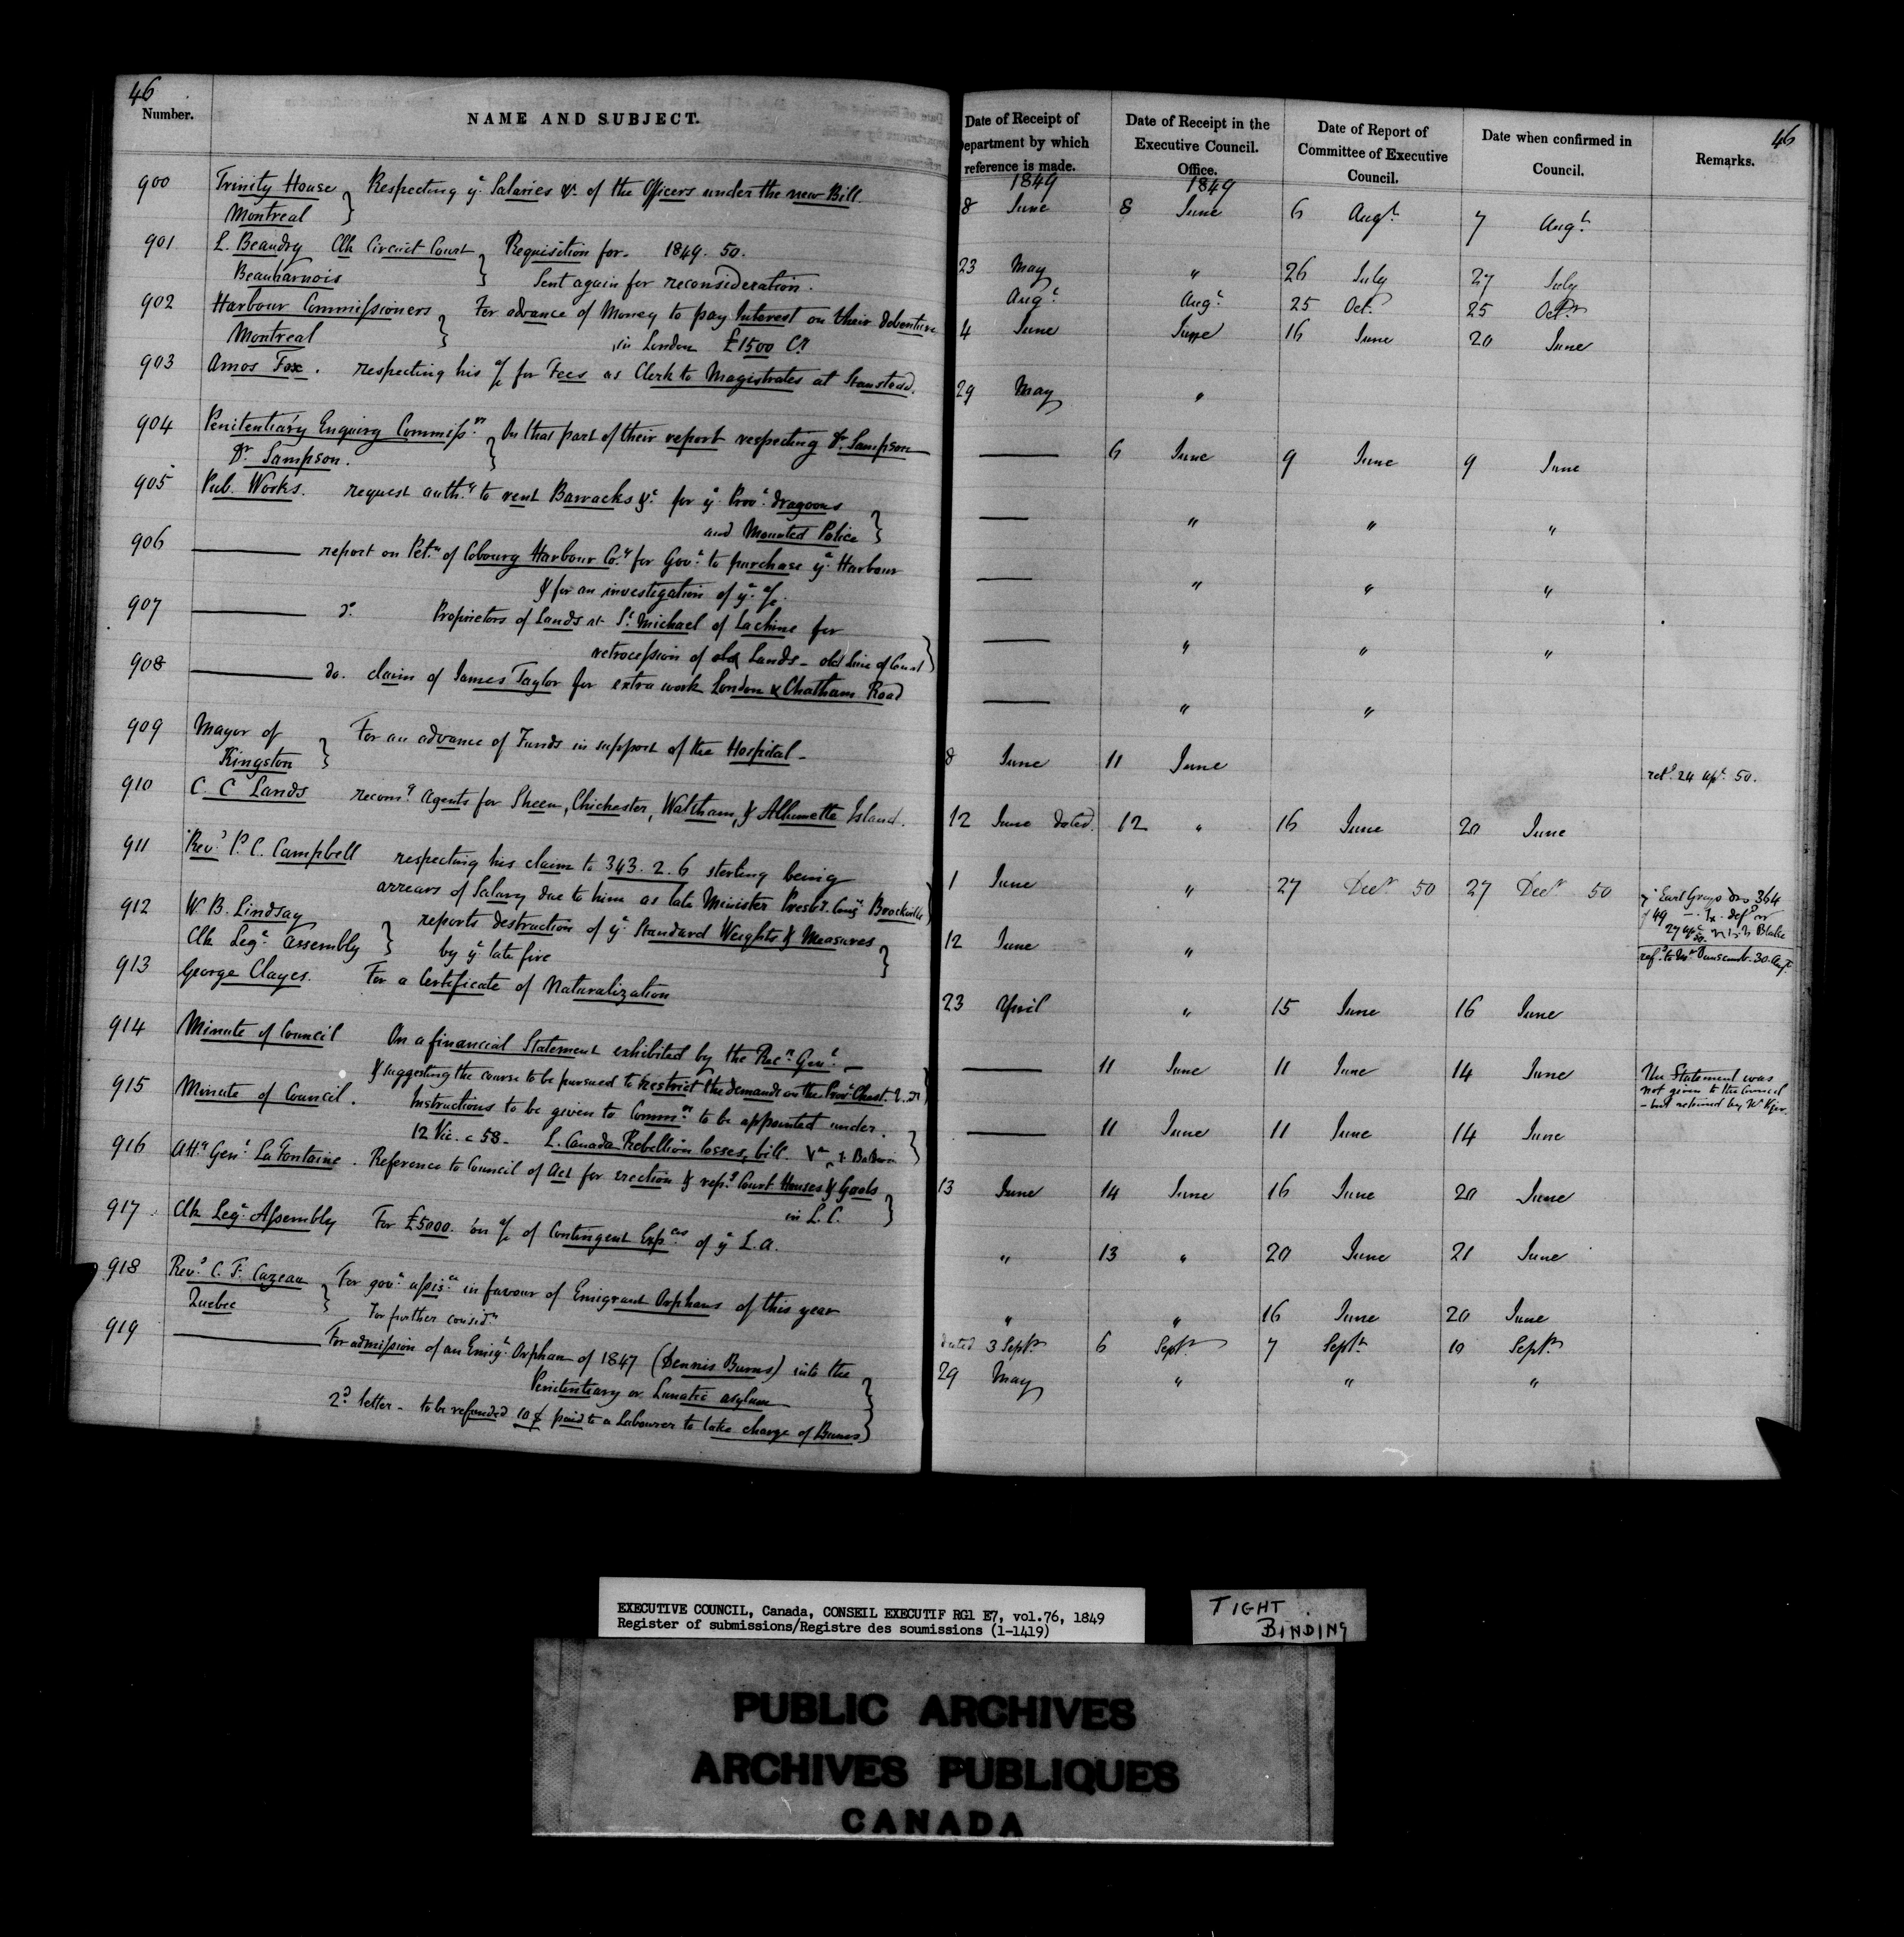 46
Number.
NAME AND SUBJECT.
900 Trinity House } Respecting yᵉ Salaries &c. of the Officers under the new Bill
Montreal
901 L. Beaudry Clk Circuit Court } Requisition for. 1849. 50.
Beauharnois Sent again for reconsideration.
902 Harbour Commissioners } For advance of Money to pay Interest on their debenture
Montreal in London £1500 Cy
903 Amos Fox. respecting his a/c for Fees as Clerk to Magistrates at Stanstead.
904 Penitentiary Enquiry Commissrs } On that part of their report respecting Dr. Sampson
Dr Sampson.
905 Pub. Works. request authy to rent Barracks &c for ye Provl dragoons
and Mounted Police }
906 ——— report on Petn of Cobourg Harbour Coy for Govt to purchase ye Harbour
& for an investigation of ye a/c.
907 ——— do. Proprietors of Lands at St. Michael of Lachine for
retrocession of old Lands - old line of Canal }
908 ——— do. claim of James Taylor for extra work London & Chatham Road
909 Mayor of } For an advance of Funds in support of the Hospital -
Kingston
910 C. C Lands recomg Agents for Sheen, Chichester, Waltham, & Allumette Island.
911 Revd P. C. Campbell respecting his claim to 343. 2. 6 sterling being
arrears of Salary due to him as late Minister Presbn Congn Brockville }
912 W. B. Lindsay } reports destruction of ye Standard Weights & Measures
Clk Legve Assembly by ye late fire }
913 George Clayes. For a Certificate of Naturalization
914 Minute of Council On a financial Statement exhibited by the Recr Genl -
& suggesting the course to be pursued to restrict the demands on the Provl Chest.
915 Minute of Council. Instructions to be given to Commrs to be appointed under.
12 Vic. c 58 - L. Canada Rebellion losses, bill.
916 Atty Genl LaFontaine. Reference to Council of Act for erection & repg Court Houses & Gaols
in L. C. }
917 Clk Legve Assembly For £5000. on a/c of Contingent Expces of ye L. A.
918 Revd C. F. Cazeau } For govt assisce in favour of Emigrant Orphans of this year
Quebec For further considn
919 ——— For admission of an Emigt Orphan of 1847 (Dennis Burns) into the
Penitentiary or Lunatic asylum }
2d letter - to be refunded 10/ paid to a Labourer to take charge of Burns }
46
Date of Receipt of
Department by which
reference is made.
Date of Receipt in the
Executive Council.
Office.
Date of Report of
Committee of Executive
Council.
Date when confirmed in
Council.
Remarks.
1849 1849
8 June 8 June 6 Augt 7 Augt
23 May " 26 July 27 July
Augt Augt 25 Oct. 25 Octr
4 June June 16 June 20 June
29 May "
——— 6 June 9 June 9 June
——— " " "
——— " " "
——— " " "
——— " "
8 June 11 June retd 24 Apl 50.
12 June dated. 12 " 16 June 20 June
1 June " 27 Decr 50 27 Decr 50
Earl Greys 364
of 49
12 June " 30 Augt
23 April " 15 June 16 June
——— 11 June 11 June 14 June The Statement was
not given to the Council
- but retained by
——— 11 June 11 June 14 June
13 June 14 June 16 June 20 June
" 13 " 20 June 21 June
" " 16 June 20 June
dated 3 Septr 6 Septr 7 Septr 10 Septr
29 May " " "
EXECUTIVE COUNCIL, Canada, CONSEIL EXECUTIF RG1 E7, vol.76, 1849
Register of submissions/Registre des soumissions (1-1419)
TIGHT
BINDING
PUBLIC ARCHIVES
ARCHIVES PUBLIQUES
CANADA